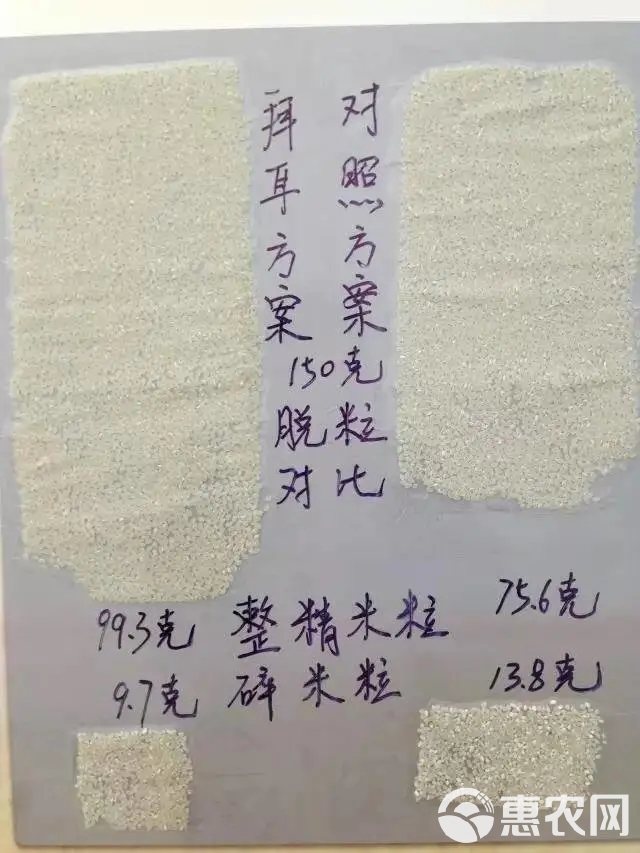 拜耳方案
对照方案
150克
脱粒
对比
99.3克 整精米粒 75.6克
9.7克 碎米粒 13.8克
惠农网